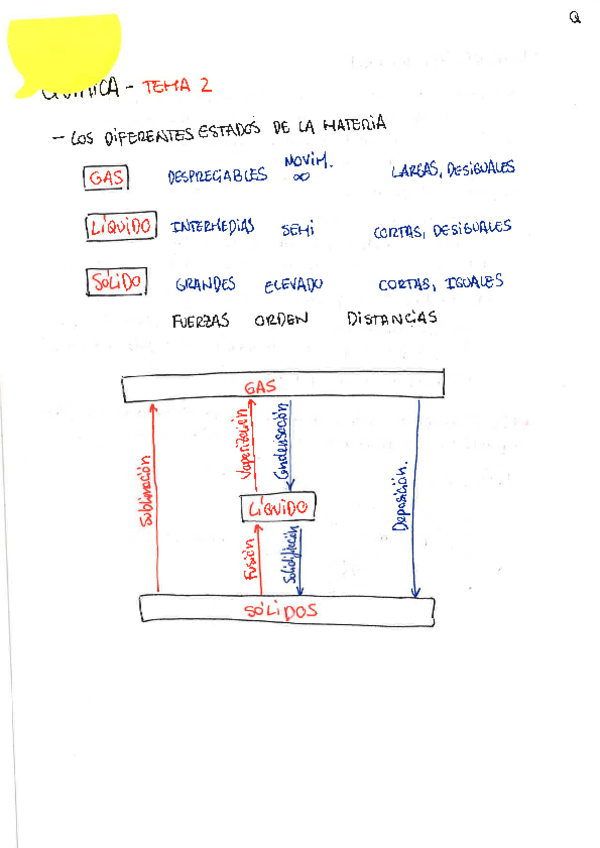 Q
QUÍMICA - TEMA 2
- LOS DIFERENTES ESTADOS DE LA MATERIA
GAS DESPRECIABLES MOVIM. ∞ LARGAS, DESIGUALES
LÍQUIDO INTERMEDIAS SEMI CORTAS, DESIGUALES
SÓLIDO GRANDES ELEVADO CORTAS, IGUALES
FUERZAS ORDEN DISTANCIAS
GAS
Sublimación
Vaporización
Condensación
Deposición.
LÍQUIDO
Fusión
Solidificación
SÓLIDOS